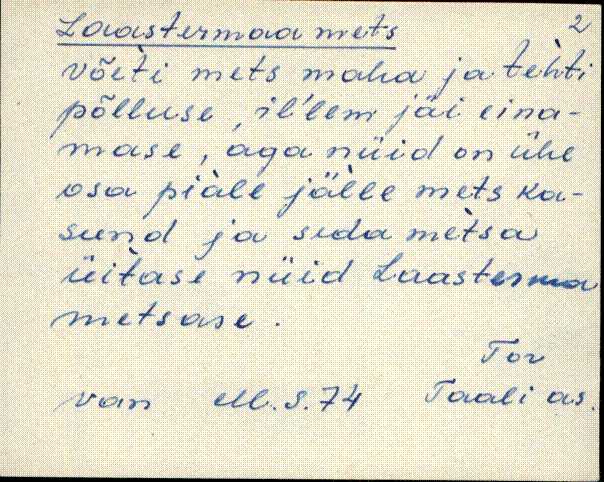 Laastermaa mets 2
võeti mets maha ja tèhti
põlluse, il'lem jäi eina-
mase, aga nüid on ühe
osa piàle jälle mets ka-
sund ja seda mètsa
üìtase nüid Laasterma
metsase.
Tor
van M.S.74 Taali as.